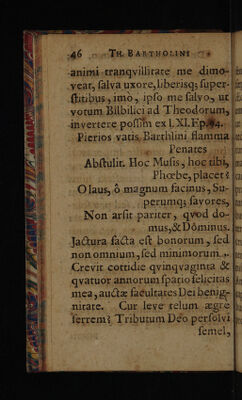 46 TH. BARTHOLINI
animi tranqvillitate me dimo-
veat, salva uxore, liberisq; super-
stitibus, imò, ipso me salvo, ut
votum Bilbilici ad Theodorum,
invertere possim ex l. XI. Ep. 94.
Pierios vatis Barthlini flamma
Penates
Abstulit. Hoc Musis, hoc tibi,
Phœbe, placet?
O laus, ô magnum facinus, Su-
perumq; favores,
Non arsit pariter, qvod do-
mus, & Dominus.
Jactura facta est bonorum, sed
non omnium, sed minimorum.
Crevit cottidie qvinqvaginta &
qvatuor annorum spatio felicitas
mea, auctæ facultates Dei benig-
nitate. Cur leve telum ægre
ferrem? Tributum Deo persolvi
semel,